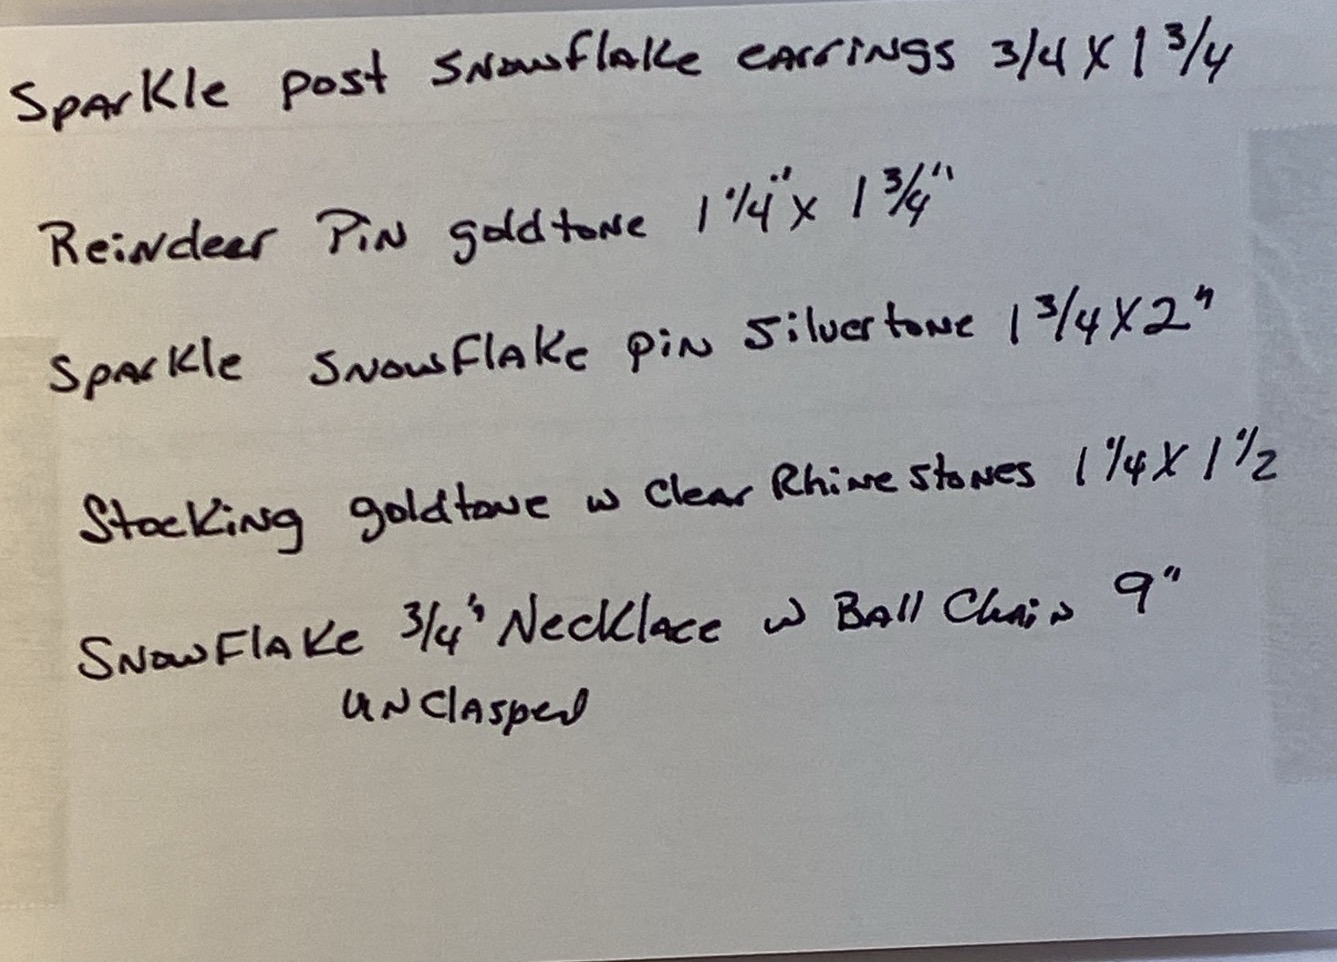 Sparkle post Snowflake earrings 3/4 X 1 3/4
Reindeer Pin goldtone 1 1/4" x 1 3/4"
Sparkle Snowflake pin Silvertone 1 3/4 X 2"
Stocking goldtone w Clear Rhinestones 1 1/4 X 1 1/2
Snowflake 3/4" Necklace w Ball Chain 9"
unclasped